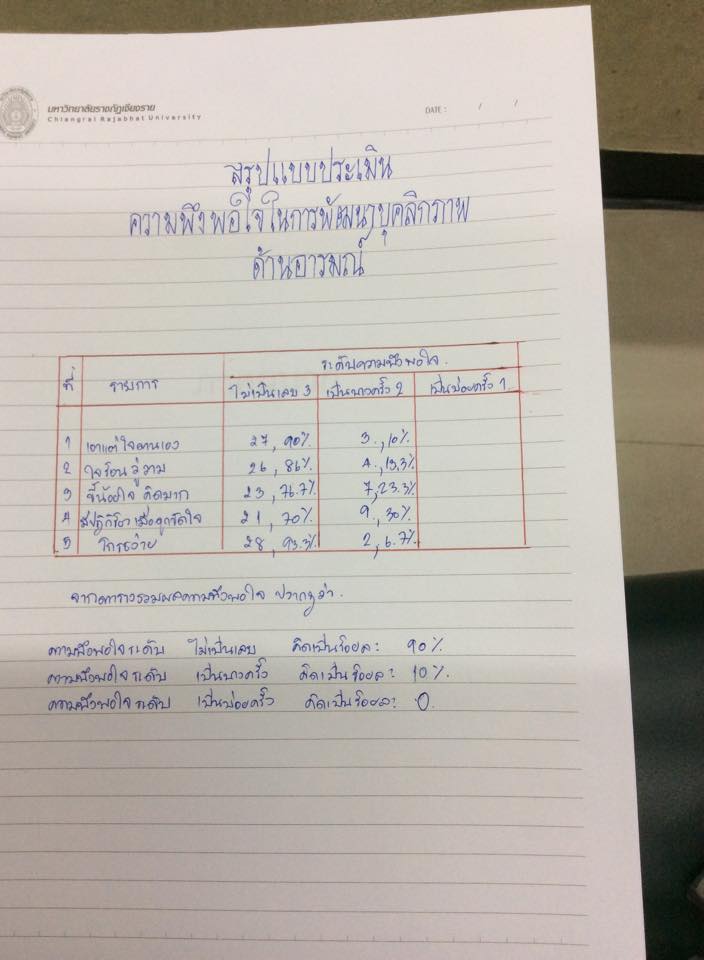 มหาวิทยาลัยราชภัฏเชียงราย
Chiangrai Rajabhat University
DATE : / /
สรุปแบบประเมิน
ความพึงพอใจในการพัฒนาบุคลิกภาพ
ด้านอารมณ์
ระดับความพึงพอใจ.
ที่ รายการ ไม่เป็นเลย 3 เป็นบางครั้ง 2 เป็นบ่อยครั้ง 1
1 เอาแต่ใจตนเอง 27, 90% 3, 10%
2 ใจร้อน วู่วาม 26, 86% 4, 13.3%
3 ขี้น้อยใจ คิดมาก 23, 76.7% 7, 23.3%
4 เมื่อถูกขัดใจ 21, 70% 9, 30%
5 โกรธง่าย 28, 93.3% 2, 6.7%
จากตารางรวมผลความพึงพอใจ ปรากฏว่า.
ความพึงพอใจระดับ ไม่เป็นเลย คิดเป็นร้อยละ 90%
ความพึงพอใจระดับ เป็นบางครั้ง คิดเป็นร้อยละ 10%.
ความพึงพอใจระดับ เป็นบ่อยครั้ง คิดเป็นร้อยละ 0.